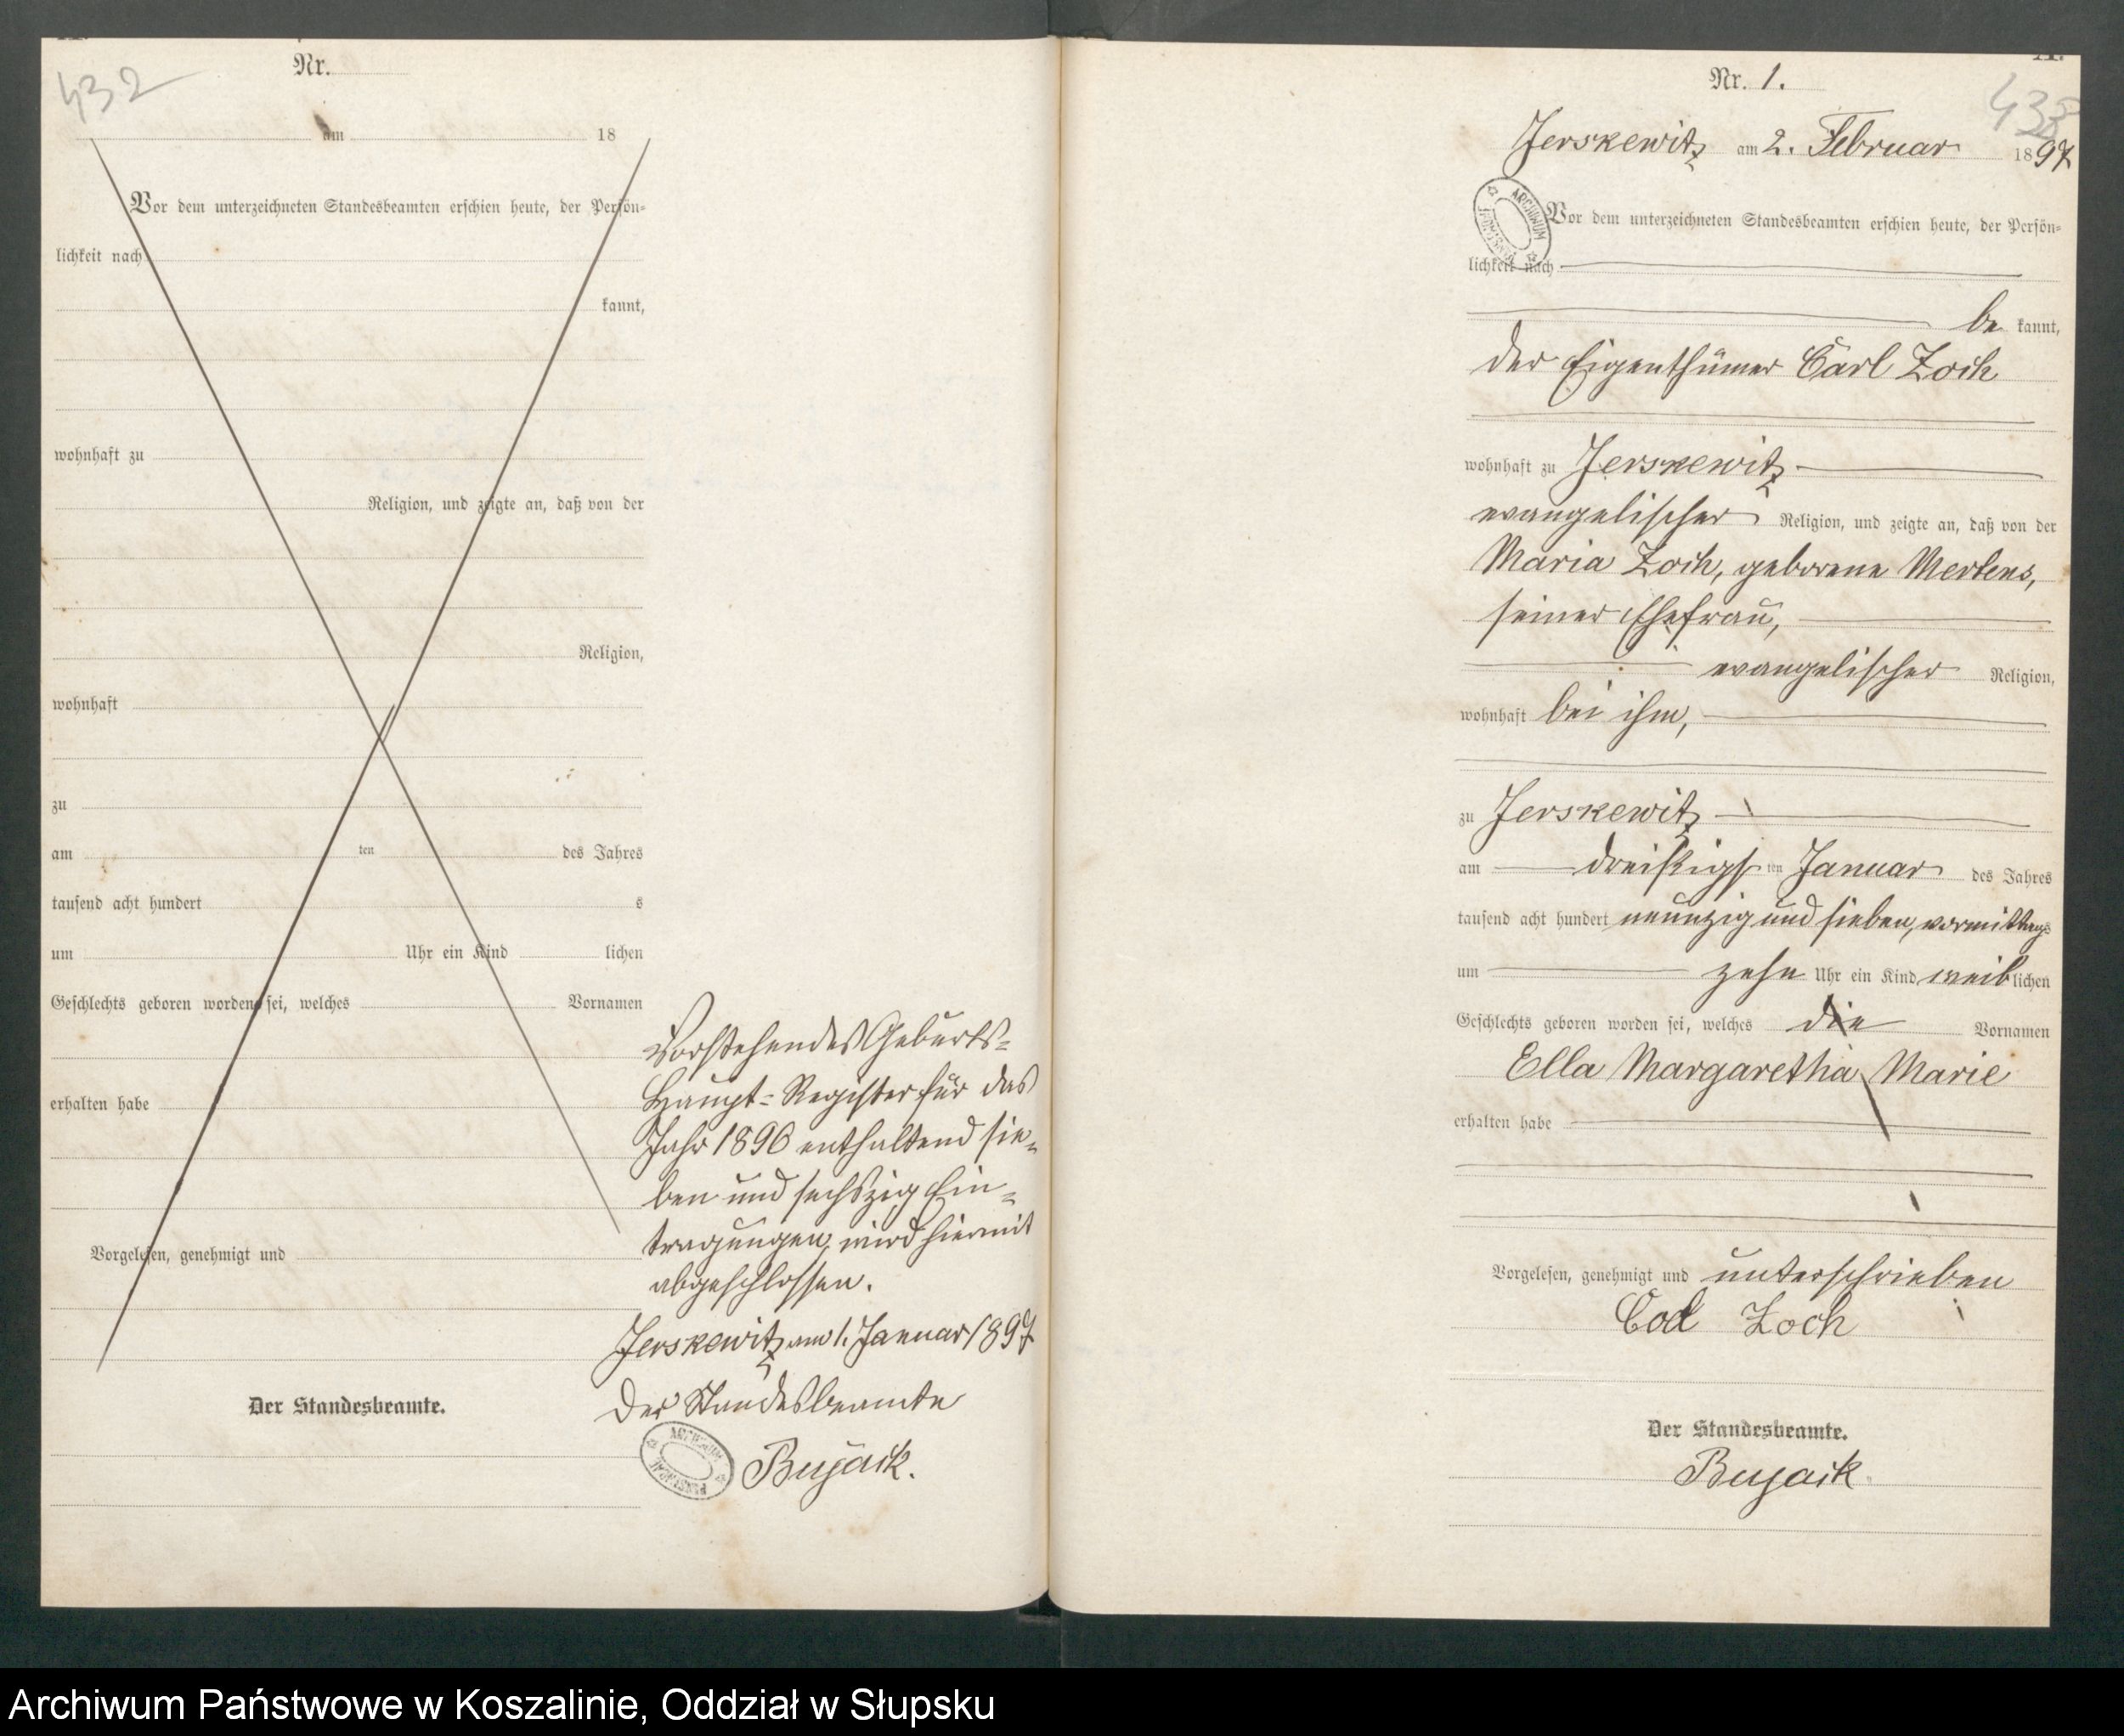 432
Nr.
am 18
Vor dem unterzeichneten Standesbeamten erschien heute, der Persön-
lichkeit nach
kannt,
wohnhaft zu
Religion, und zeigte an, daß von der
Religion,
wohnhaft
zu
am ten des Jahres
tausend acht hundert s
um Uhr ein Kind lichen
Geschlechts geboren worden sei, welches Vornamen
erhalten habe
Vorgelesen, genehmigt und
Der Standesbeamte.
Vorstehendes Geburts-
Haupt-Register für das
Jahr 1896 enthaltend sie-
ben und sechszig Ein-
tragungen, wird hiermit
abgeschlossen.
Jerskewitz am 1. Januar 1897
Der Standesbeamte
Bujack.
Nr. 1.
Jerskewitz am 2. Februar 1897
ARCHIWUM
Vor dem unterzeichneten Standesbeamten erschien heute, der Persön-
lichkeit nach
be kannt,
der Eigenthümer Carl Zoch
wohnhaft zu Jerskewitz
evangelischer Religion, und zeigte an, daß von der
Maria Zoch, geborene Mertens,
seiner Ehefrau,
evangelischer Religion,
wohnhaft bei ihm,
zu Jerskewitz
am dreißigsten Januar des Jahres
tausend acht hundert neunzig und sieben, vormittags
um zehn Uhr ein Kind weiblichen
Geschlechts geboren worden sei, welches die Vornamen
Ella Margaretha Marie
erhalten habe
Vorgelesen, genehmigt und unterschrieben
Zoch
Der Standesbeamte.
Bujack
Archiwum Państwowe w Koszalinie, Oddział w Słupsku